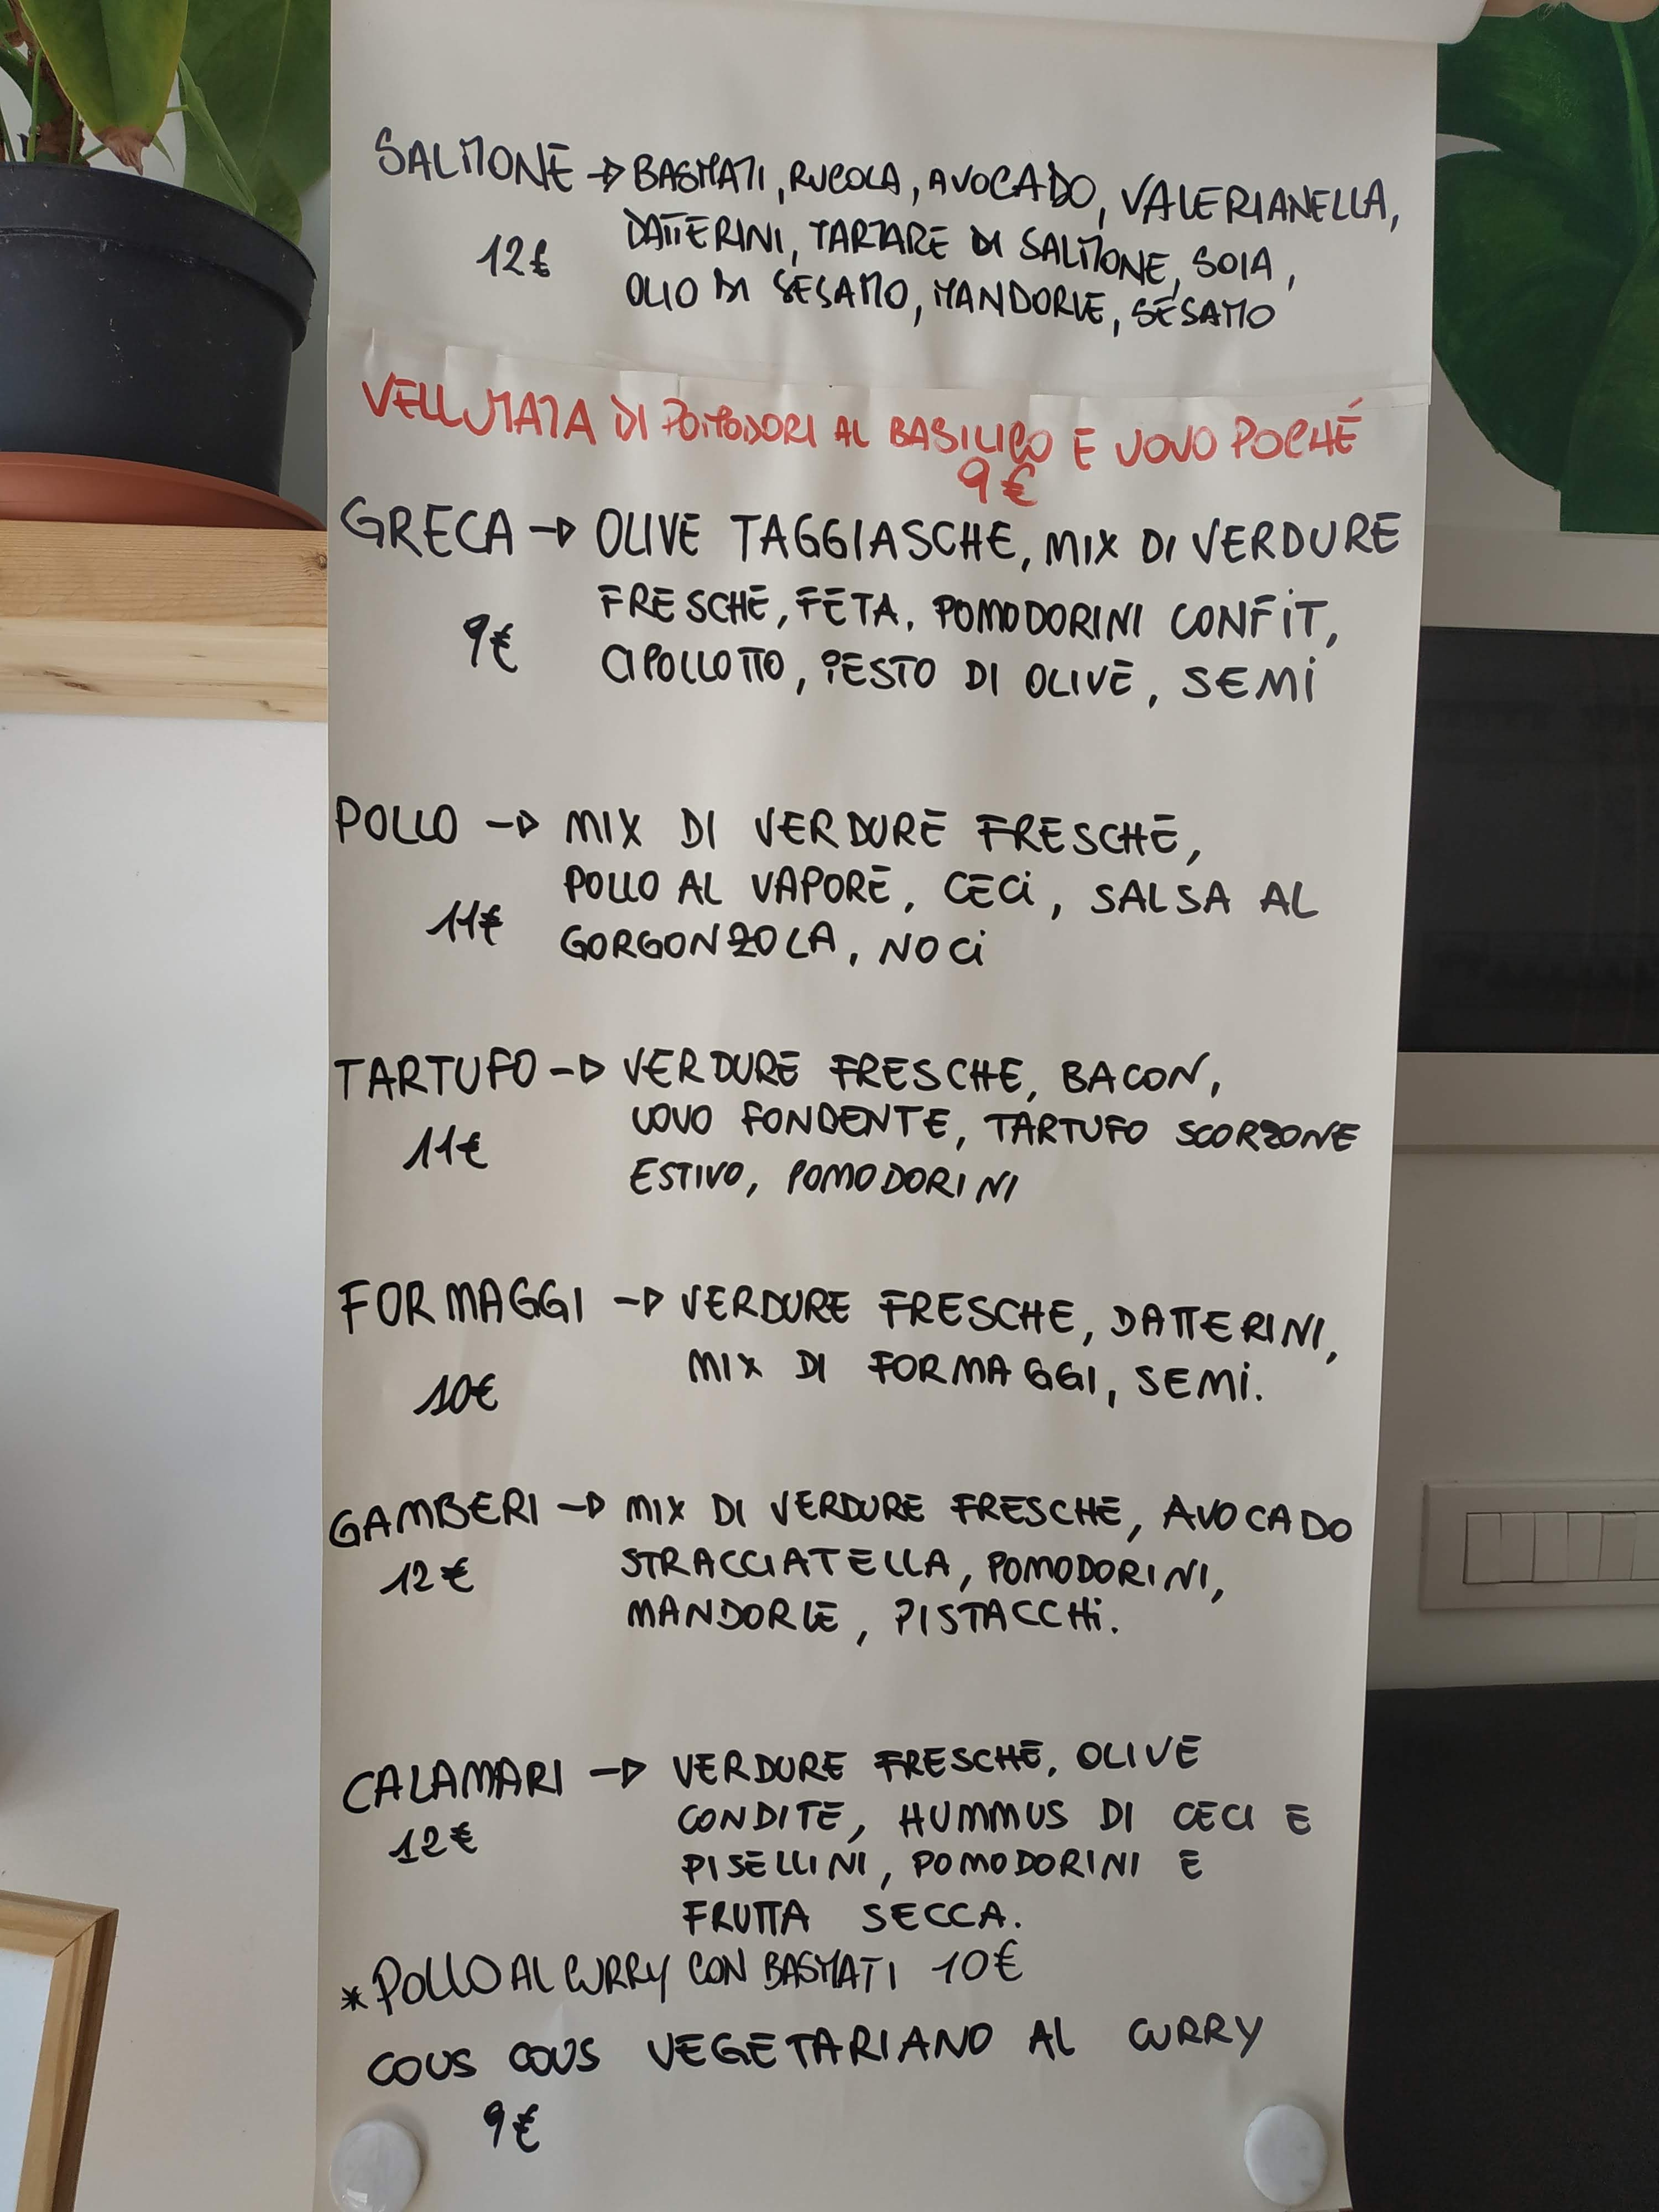 SALMONE → BASMATI, RUCOLA, AVOCADO, VALERIANELLA,
DATTERINI, TARTARE DI SALMONE, SOIA,
12€
OLIO DI SESAMO, MANDORLE, SESAMO
VELLUTATA DI POMODORI AL BASILICO E UOVO POCHÉ
9€
GRECA → OLIVE TAGGIASCHE, MIX DI VERDURE
FRESCHE, FETA, POMODORINI CONFIT,
9€
CIPOLLOTTO, PESTO DI OLIVE, SEMI
POLLO → MIX DI VERDURE FRESCHE,
POLLO AL VAPORE, CECI, SALSA AL
11€
GORGONZOLA, NOCI
TARTUFO → VERDURE FRESCHE, BACON,
UOVO FONDENTE, TARTUFO SCORZONE
11€
ESTIVO, POMODORINI
FORMAGGI → VERDURE FRESCHE, DATTERINI,
MIX DI FORMAGGI, SEMI.
10€
GAMBERI → MIX DI VERDURE FRESCHE, AVOCADO
12€
STRACCIATELLA, POMODORINI,
MANDORLE, PISTACCHI.
CALAMARI → VERDURE FRESCHE, OLIVE
CONDITE, HUMMUS DI CECI E
12€
PISELLINI, POMODORINI E
FRUTTA SECCA.
* POLLO AL CURRY CON BASMATI 10€
COUS COUS VEGETARIANO AL CURRY
9€